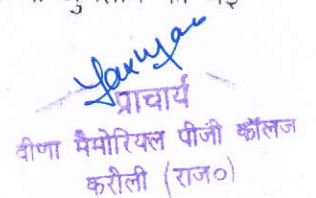 प्राचार्य
वीणा मैमोरियल पीजी कॉलज
करौली (राज०)